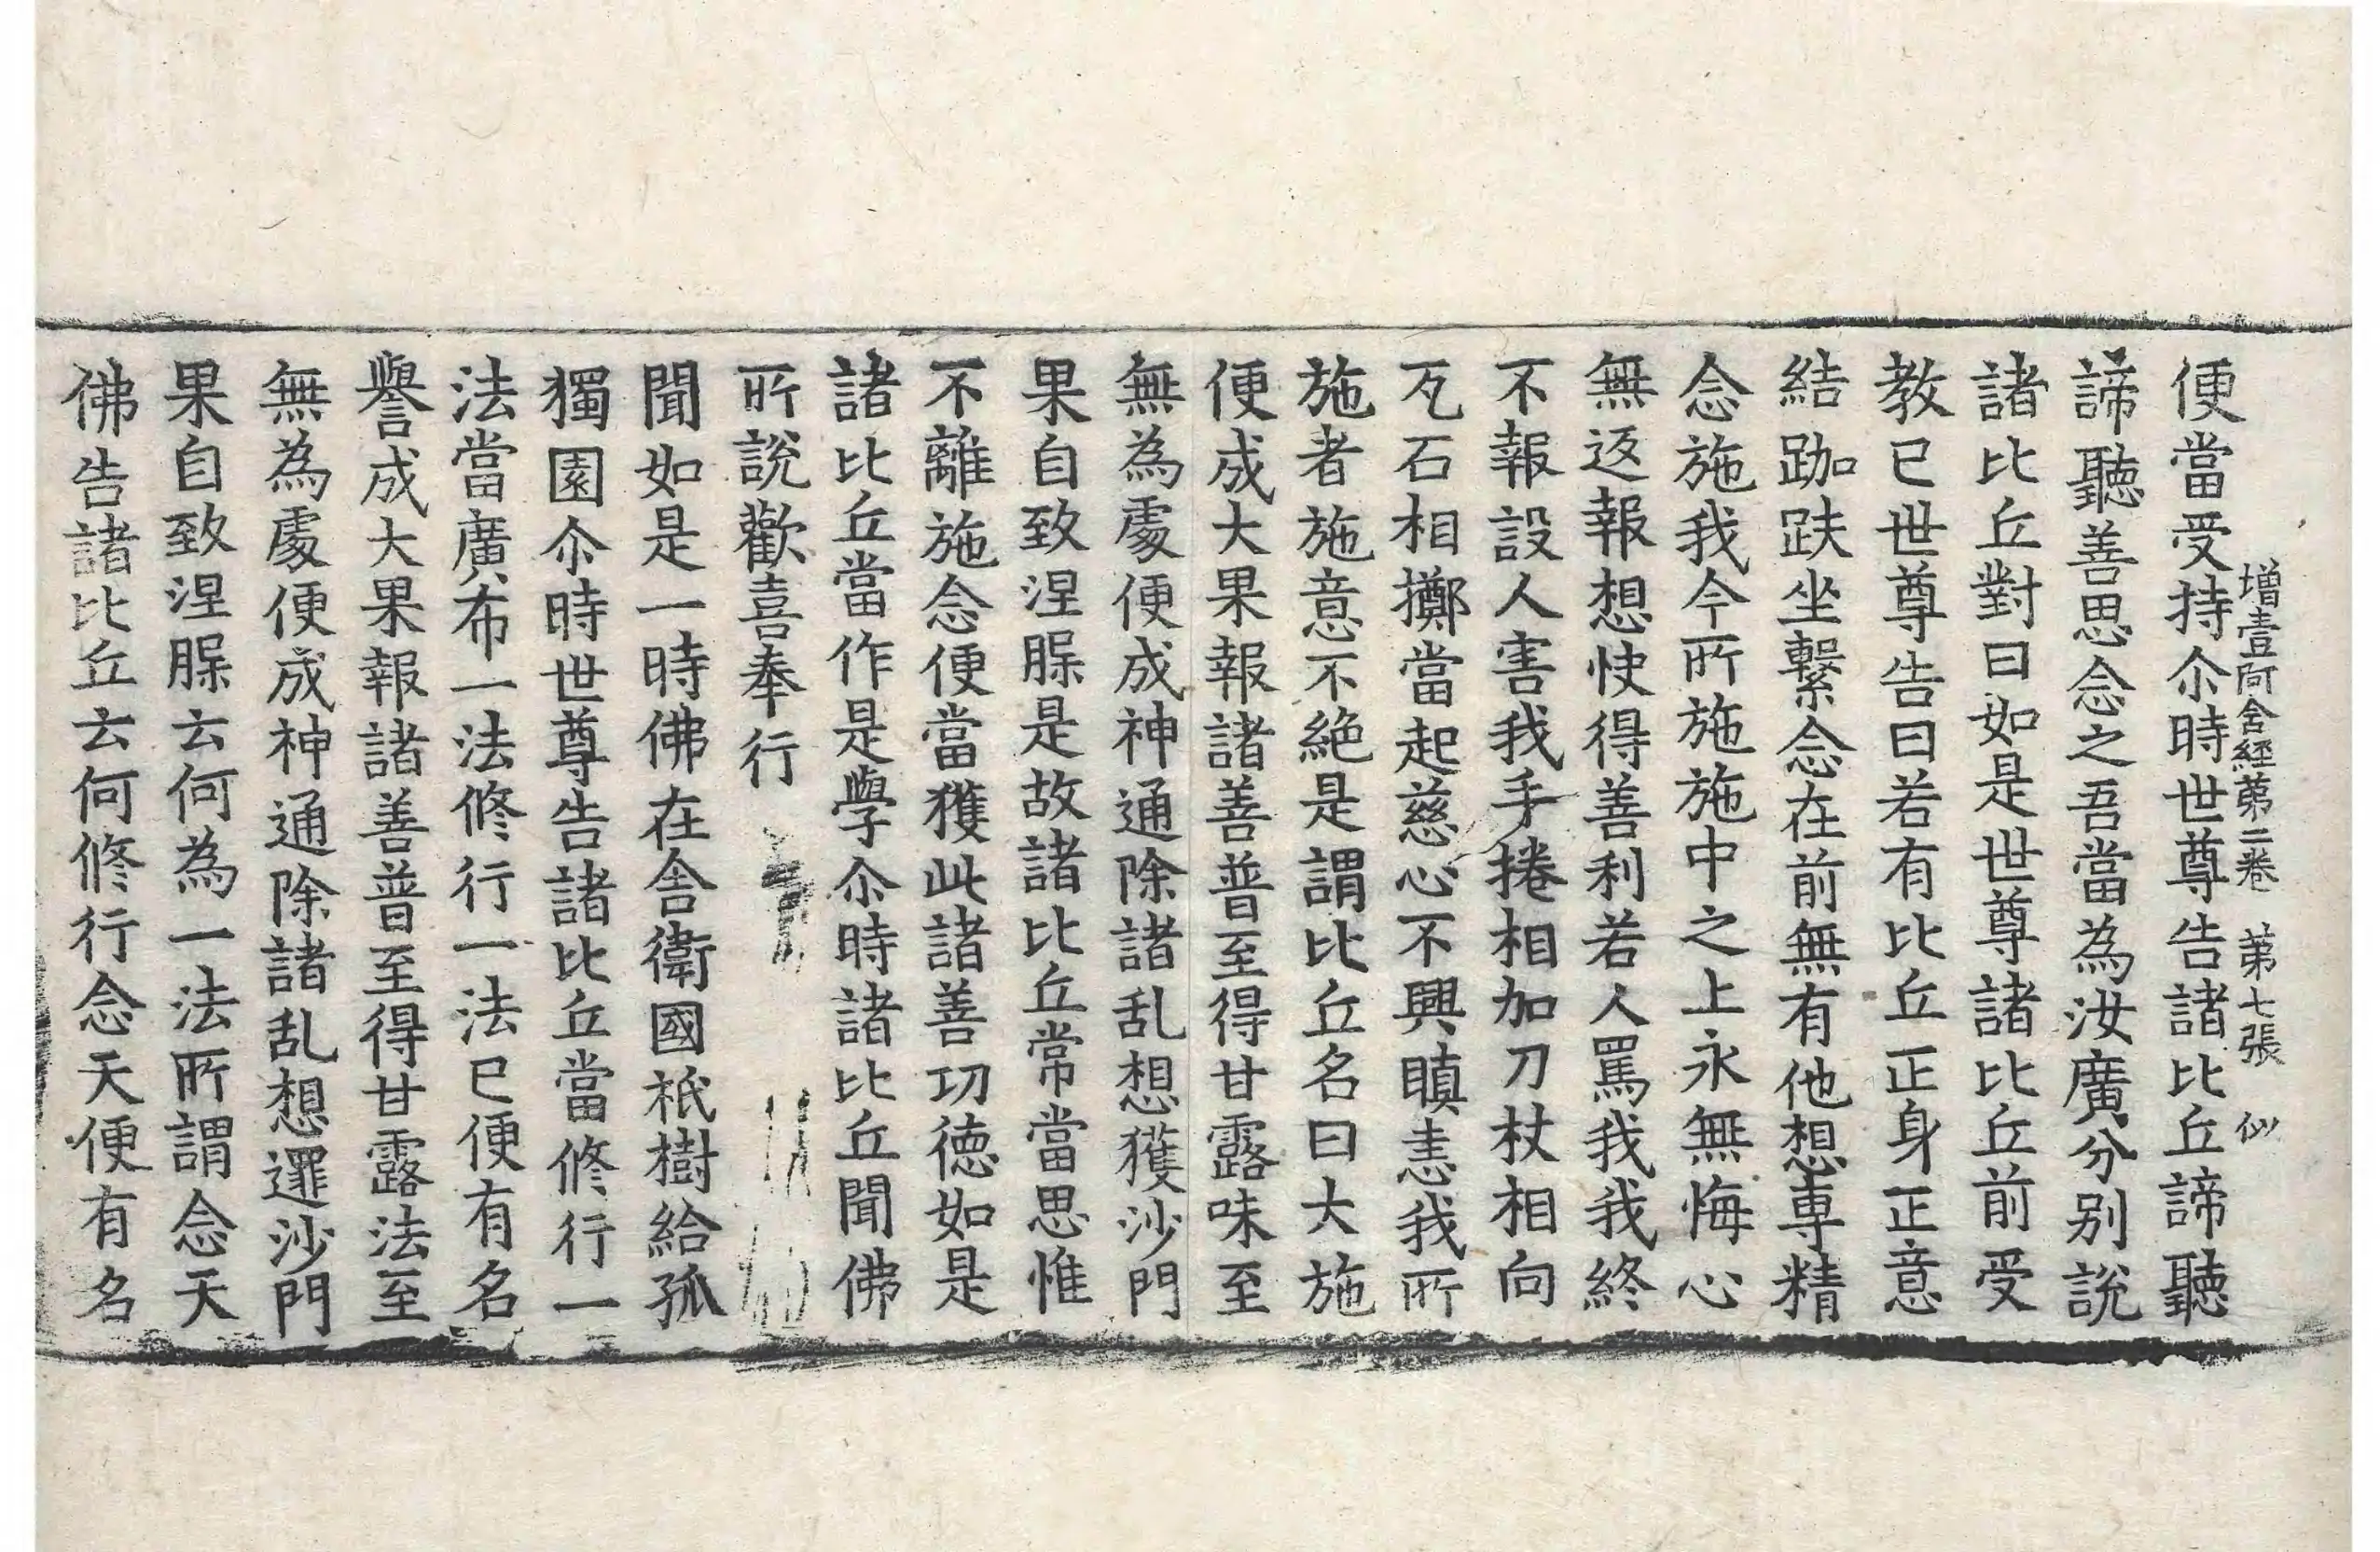 增壹阿含經第二卷 第七張 仙
便當受持尒時世尊告諸比丘諦聽
諦聽善思念之吾當為汝廣分別說
諸比丘對曰如是世尊諸比丘前受
教已世尊告曰若有比丘正身正意
結跏趺坐繫念在前無有他想專精
念施我今所施施中之上永無悔心
無返報想快得善利若人罵我我終
不報設人害我手捲相加刀杖相向
瓦石相擲當起慈心不興瞋恚我所
施者施意不絕是謂比丘名曰大施
便成大果報諸善普至得甘露味至
無為處便成神通除諸乱想獲沙門
果自致涅槃是故諸比丘常當思惟
不離施念便當獲此諸善功德如是
諸比丘當作是學尒時諸比丘聞佛
所說歡喜奉行
聞如是一時佛在舍衛國祇樹給孤
獨園尒時世尊告諸比丘當修行一
法當廣布一法修行一法已便有名
譽成大果報諸善普至得甘露法至
無為處便成神通除諸乱想逻沙門
果自致涅槃云何為一法所謂念天
佛告諸比丘云何修行念天便有名